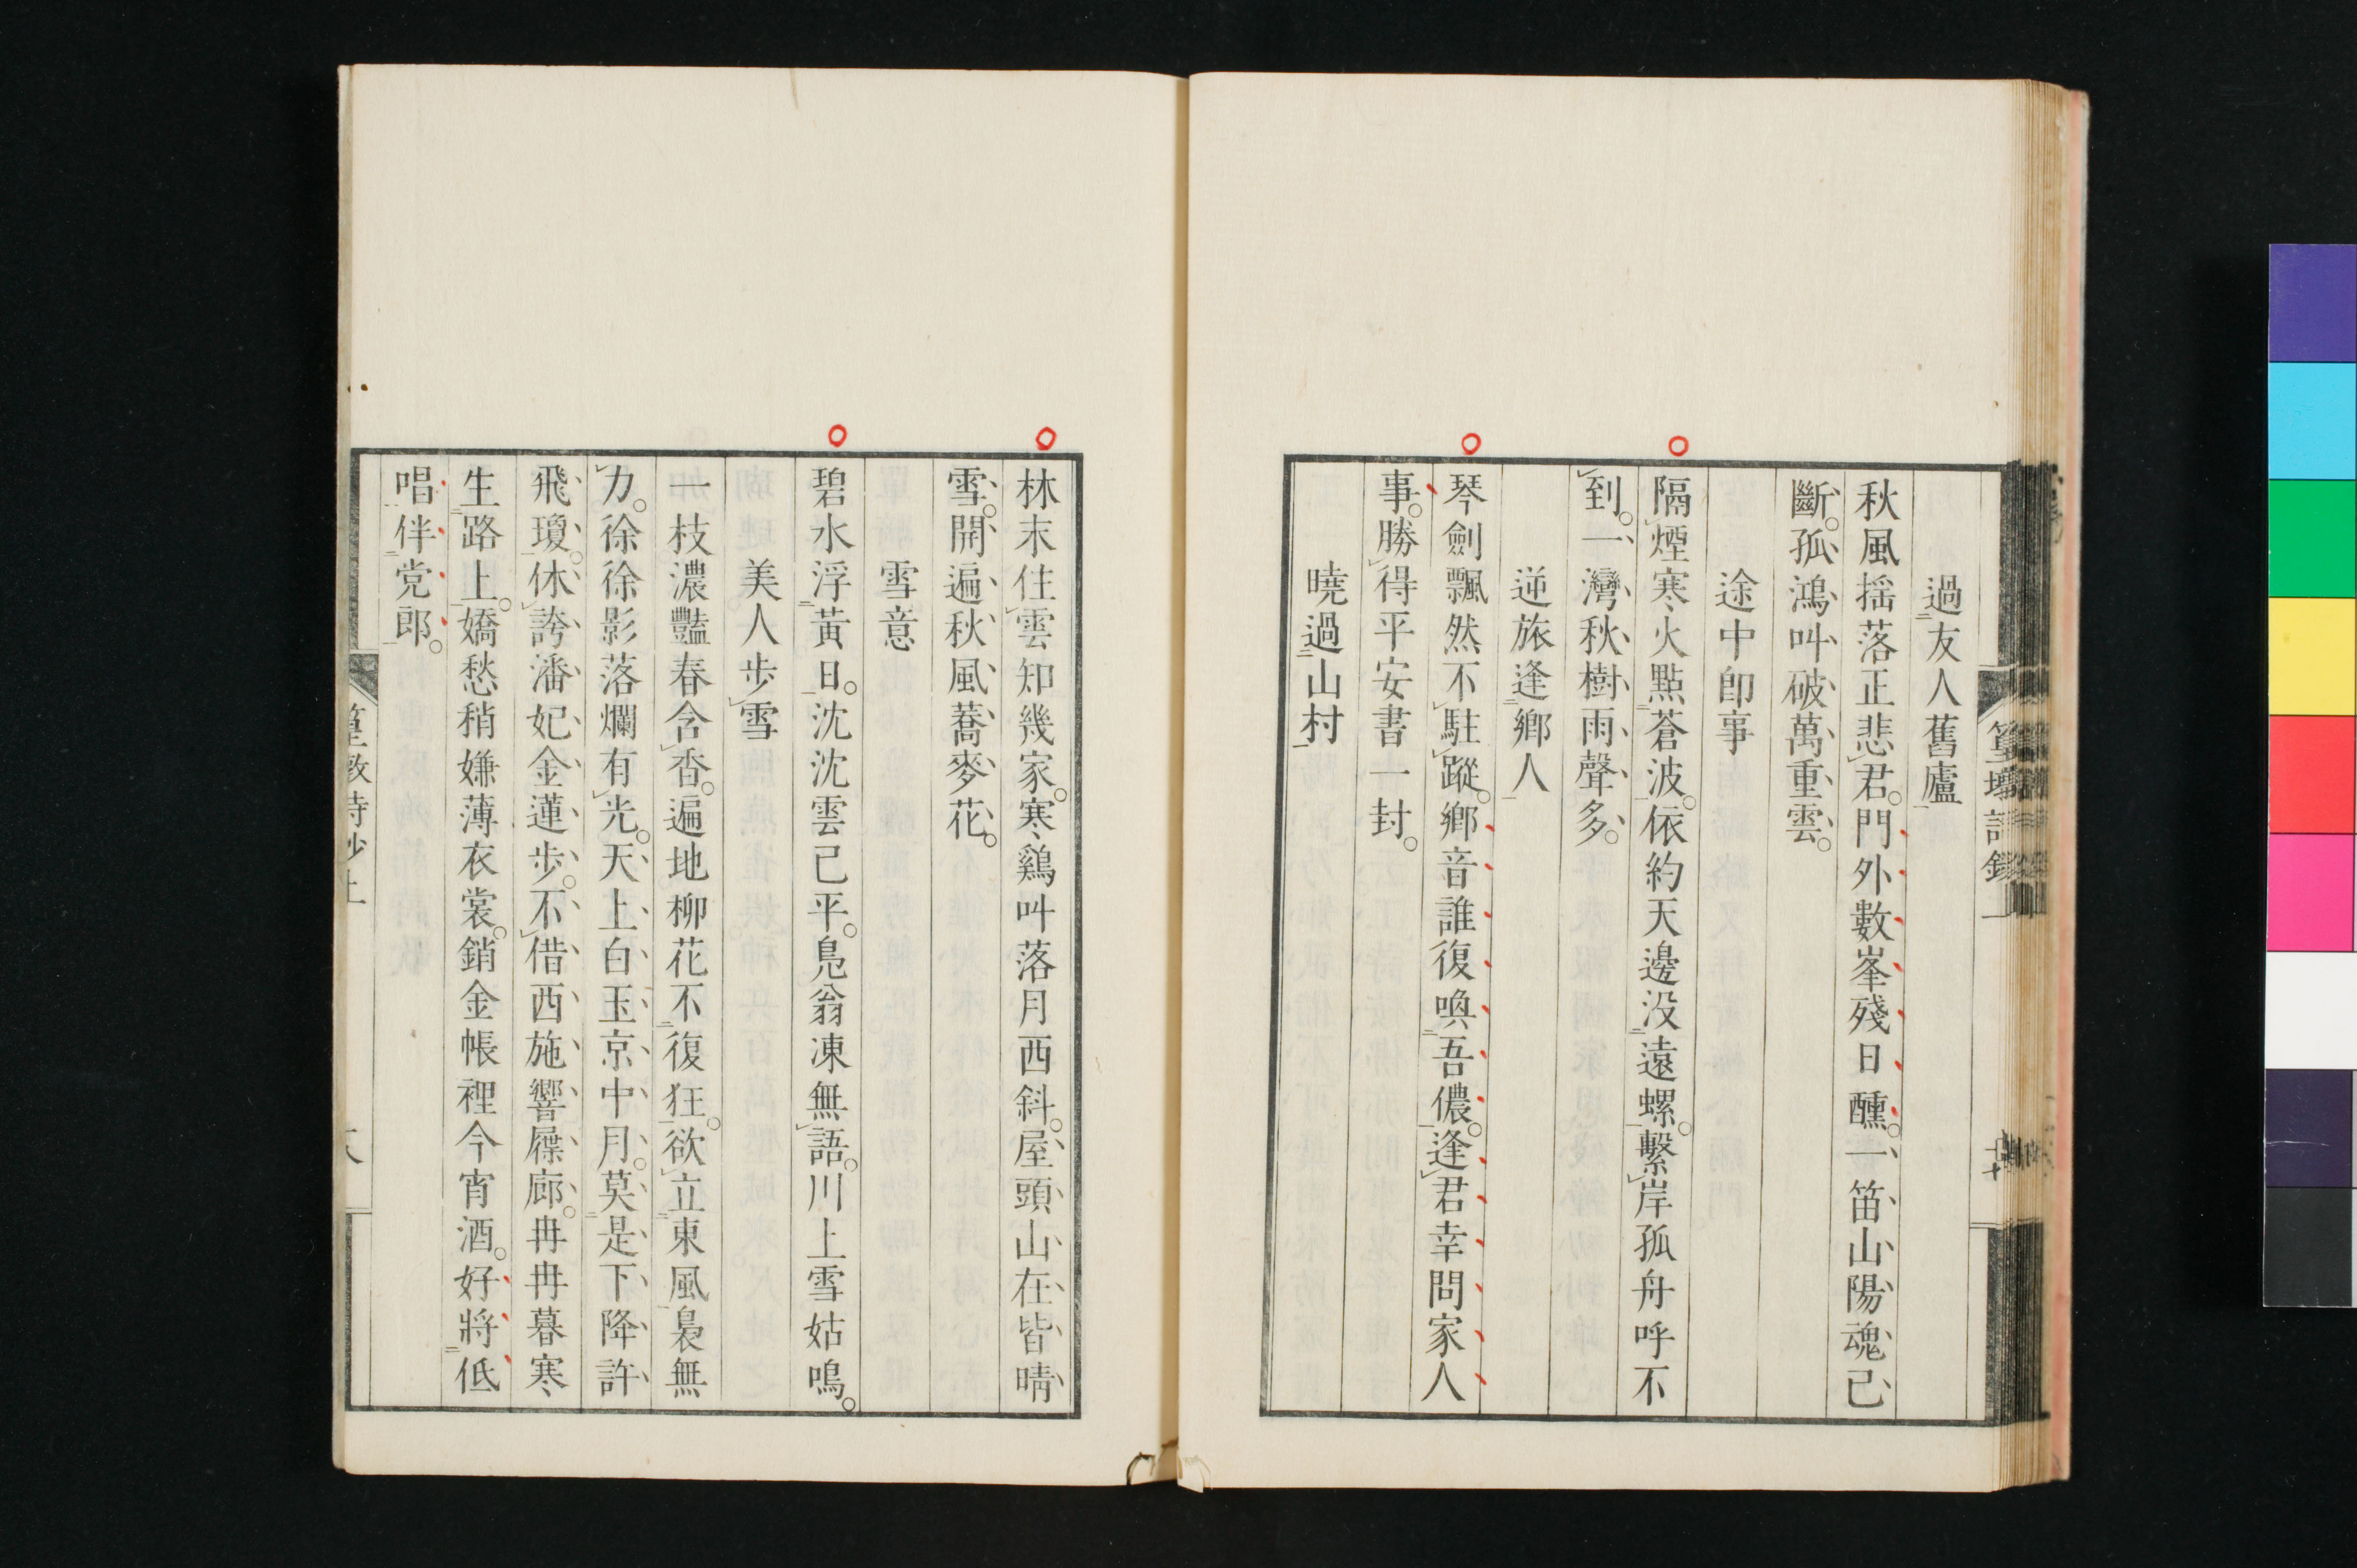 過友人舊廬
秋風揺落正悲君。門外數峯殘日醺。一笛山陽魂已
斷。孤鴻叫破萬重雲。
途中卽事
隔煙寒火點蒼波。依約天邊没遠螺。繫岸孤舟呼不
到。一灣秋樹雨聲多。
逆旅逢鄉人
琴劍飄然不駐蹤。鄉音誰復喚吾儂。逢君幸問家人
事。勝得平安書一封。
曉過山村
林末住雲知幾家。寒鷄叫落月西斜。屋頭山在皆晴
雪。開遍秋風蕎麥花。
雪意
碧水浮黃日。沈沈雲已平。鳧翁凍無語。川上雪姑鳴。
美人步雪
一枝濃豔春含香。遍地柳花不復狂。欲立東風裊無
力。徐徐影落爛有光。天上白玉京中月。莫是下降許
飛瓊。休誇潘妃金蓮步。不借西施響屧廊。冉冉暮寒
生路上。嬌愁稍嫌薄衣裳。銷金帳裡今宵酒。好將低
唱伴党郎。